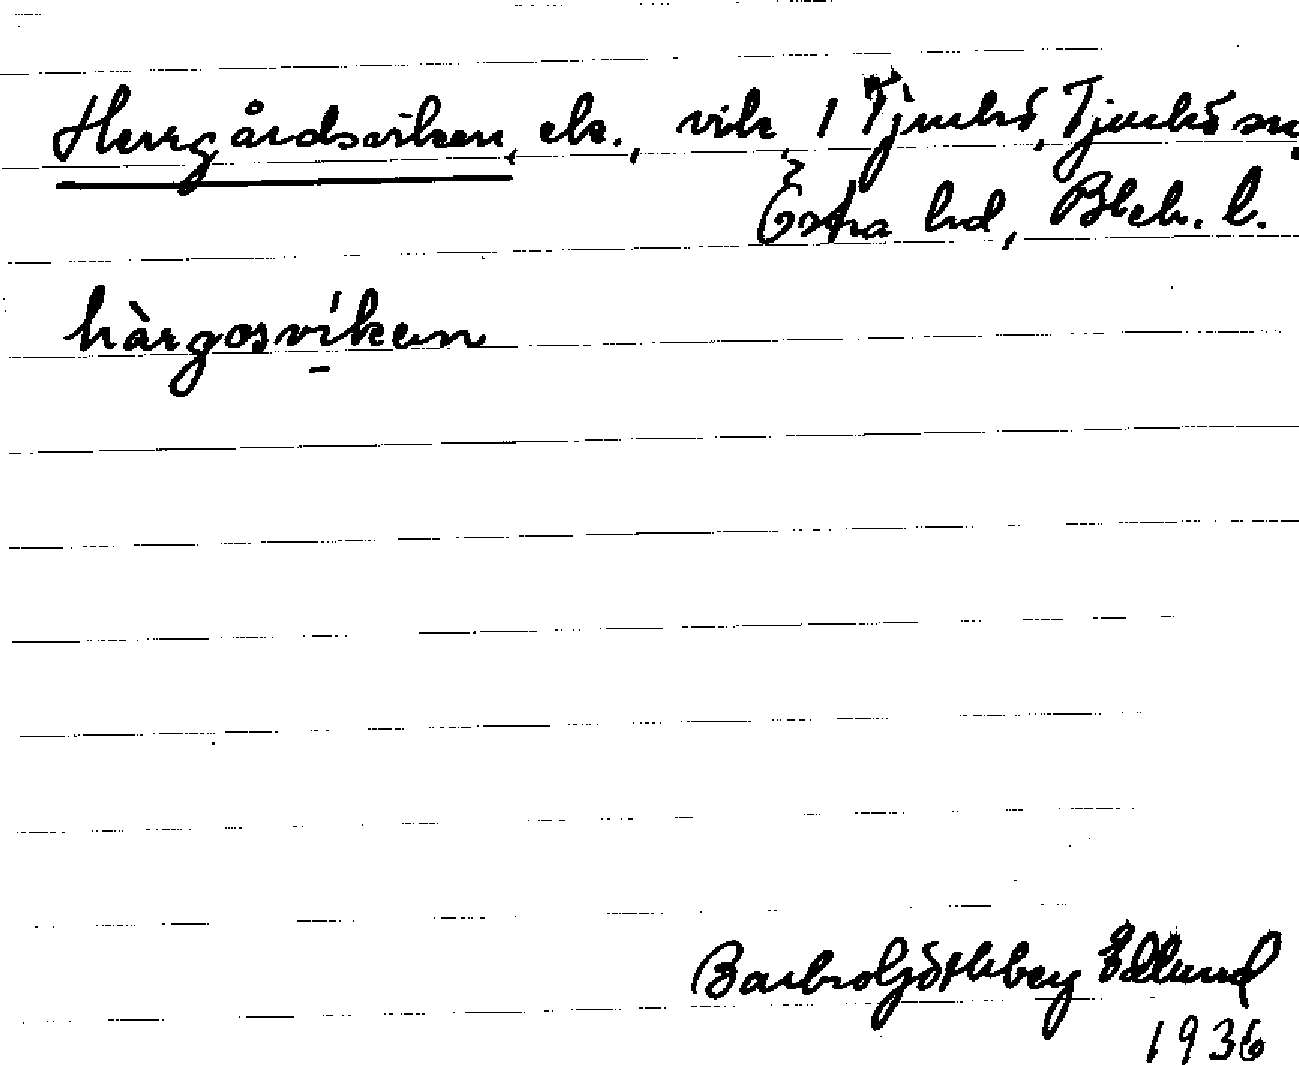 Herrgårdsviken, ek., vik, 1 Tjurkö, Tjurkö sn,
Östra hd, Blek. l.
hàrgosvíken
Barbro Götlberg Edlund
1936